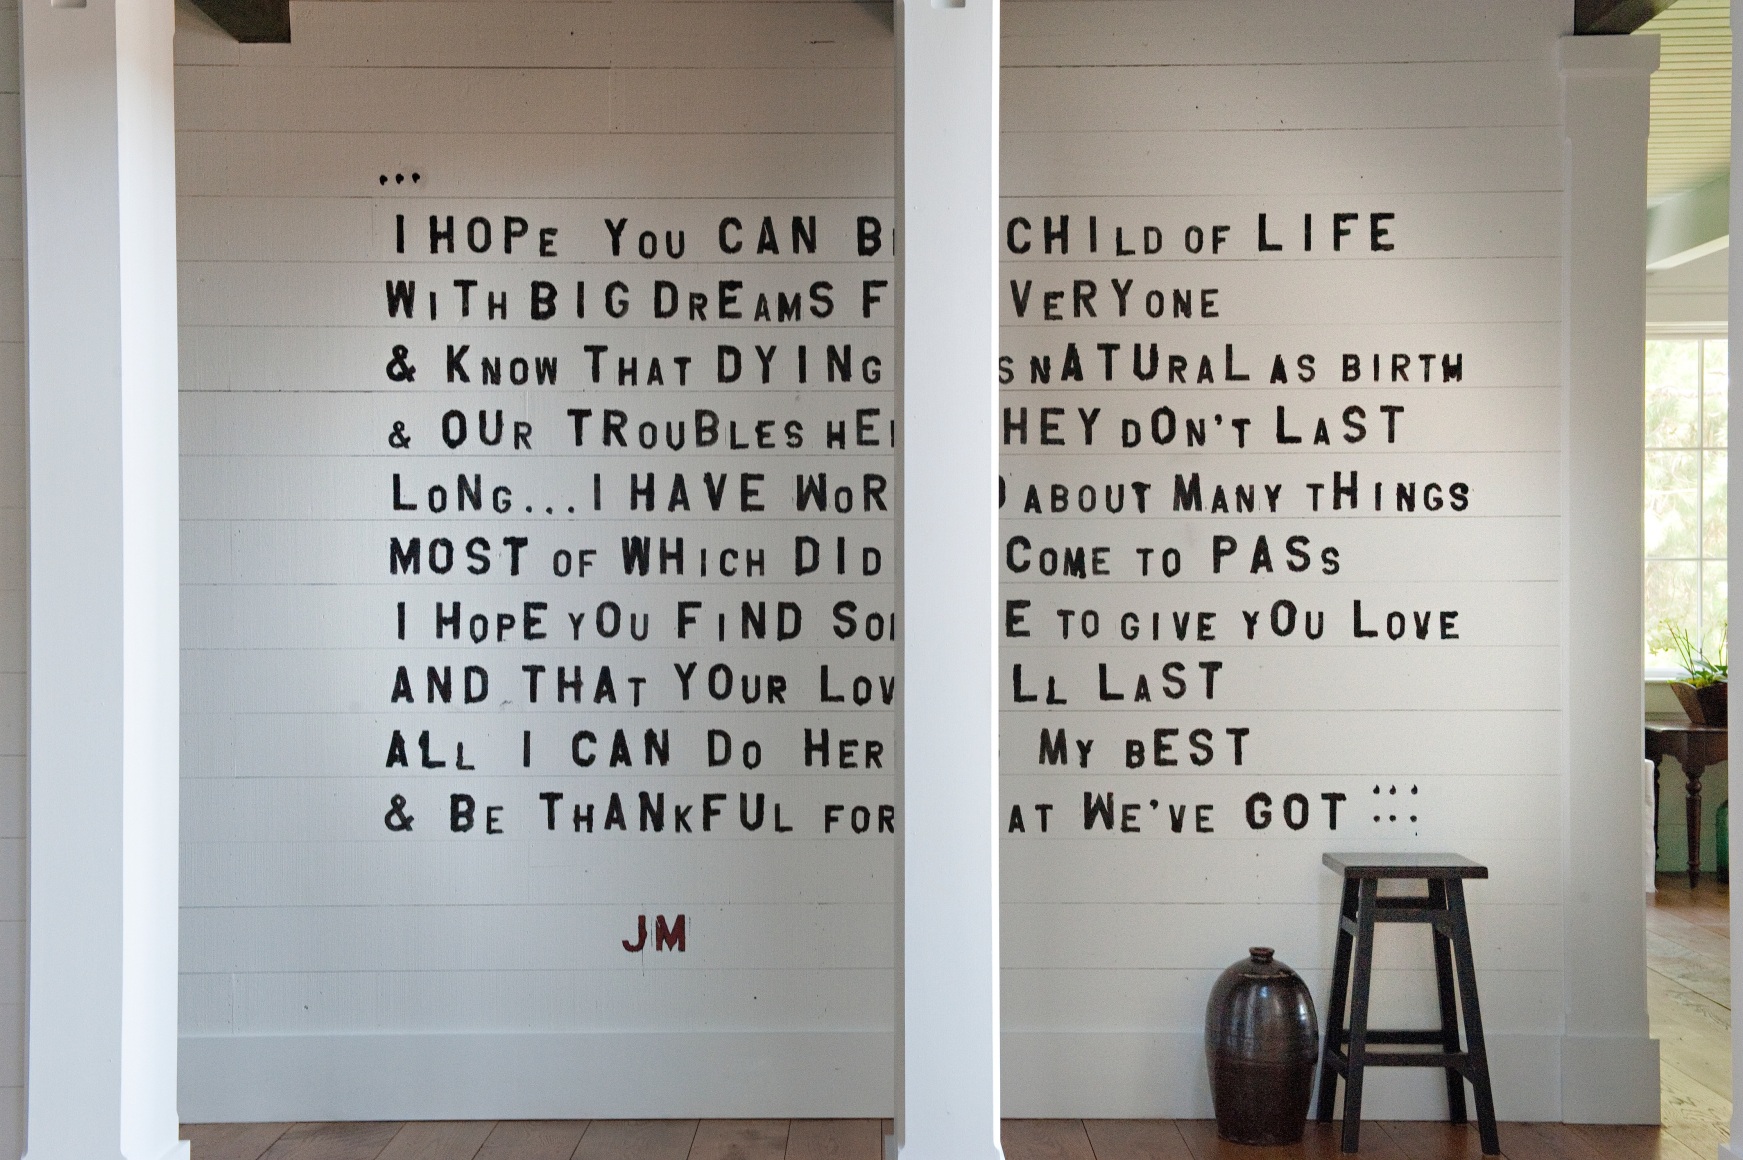 ...
I HOPE YOU CAN CHILD OF LIFE
WITH BIG DREAMS VERYONE
& KNOW THAT DYING NATURAL AS BIRTH
& OUR TROUBLES HEY DON'T LAST
LONG...I HAVE ABOUT MANY THINGS
MOST OF WHICH DID COME TO PASS
I HOPE YOU FIND TO GIVE YOU LOVE
AND THAT YOUR LAST
ALL I CAN DO MY BEST
& BE THANKFUL FOR WE'VE GOT
JM